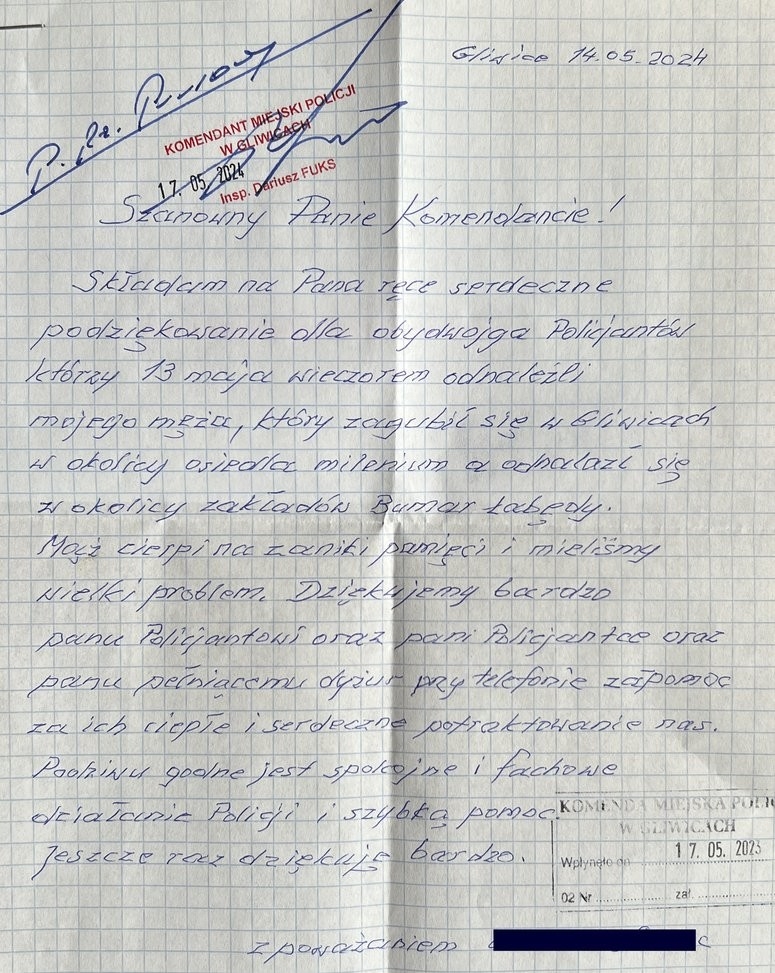 Gliwice 14.05.2024
KOMENDANT MIEJSKI POLICJI
W GLIWICACH
17. 05. 2024
Insp. Dariusz FUKS
Szanowny Panie Komendancie!
Składam na Pana ręce serdeczne
podziękowanie dla obydwojga Policjantów
którzy 13 maja wieczorem odnaleźli
mojego męża, który zagubił się w Gliwicach
w okolicy osiedla milenium a odnalazł się
w okolicy zakładów Bumar Łabędy.
Mąż cierpi na zaniki pamięci i mieliśmy
wielki problem. Dziękujemy bardzo
panu Policjantowi oraz pani Policjantce oraz
panu pełniącemu dyżur przy telefonie zapomoc
za ich ciepłe i serdeczne potraktowanie nas.
Podziwu godne jest spokojne i fachowe
działanie Policji i szybką pomoc.
Jeszcze raz dziękuję bardzo.
KOMENDA MIEJSKA POLICJI
W GLIWICACH
Wpłynęło dn. 17. 05. 2023
02 Nr zał.
z poważaniem